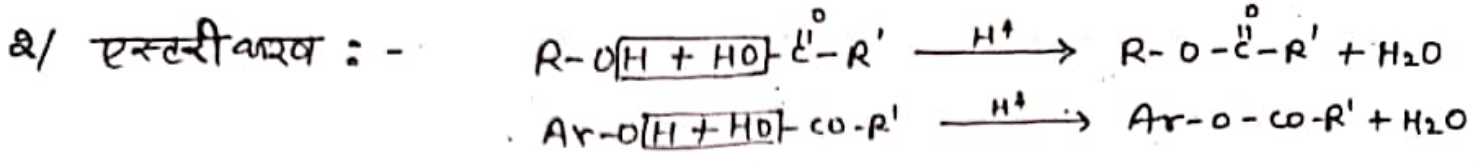 2/ एस्टरीकरण : - R-O[H + HO]-C(=O)-R' —H⁺→ R-O-C(=O)-R' + H₂O
Ar-O[H + HO]-CO-R' —H⁺→ Ar-O-CO-R' + H₂O